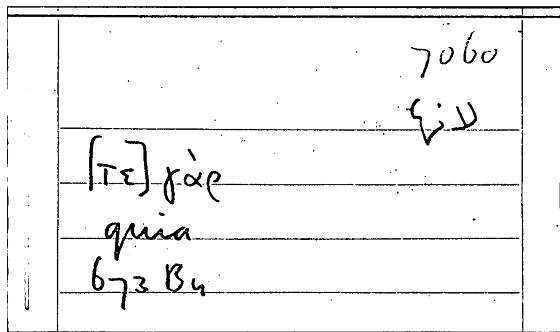 7060
[τε] γὰρ
quia
673 B4